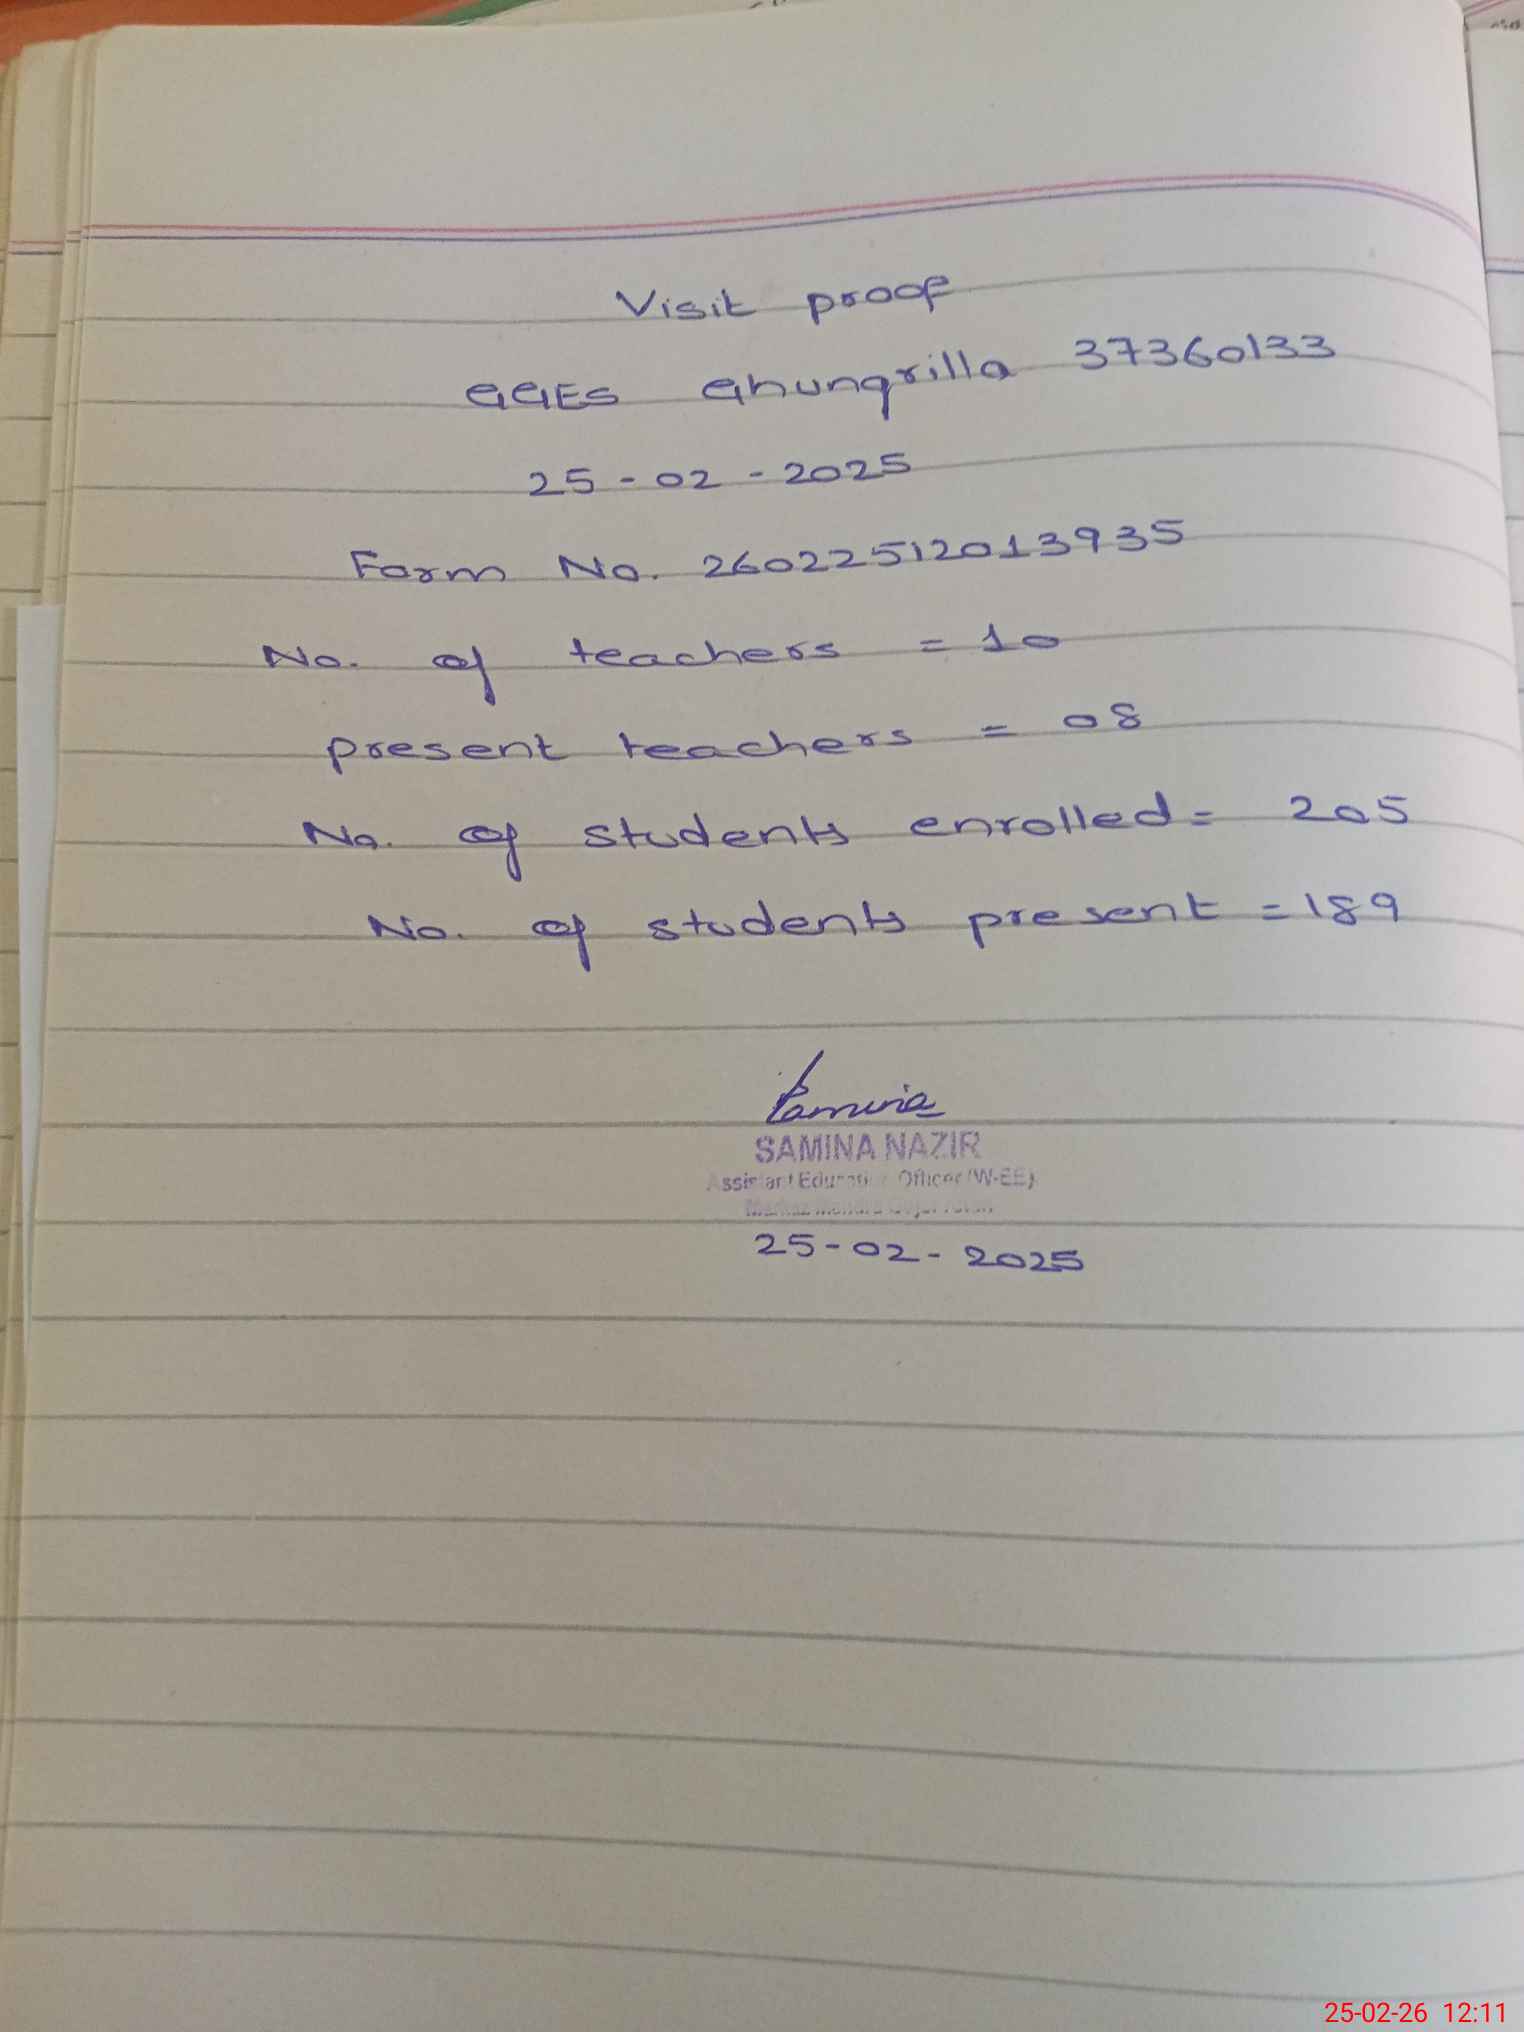 Visit proof
GGES Ghungrilla 37360133
25-02-2025
Form No. 26022512013935
No. of teachers = 10
present teachers = 08
No. of students enrolled = 205
No. of students present = 189
Samina
SAMINA NAZIR
Assistant Education Officer (W-EE)
25-02-2025
25-02-26 12:11